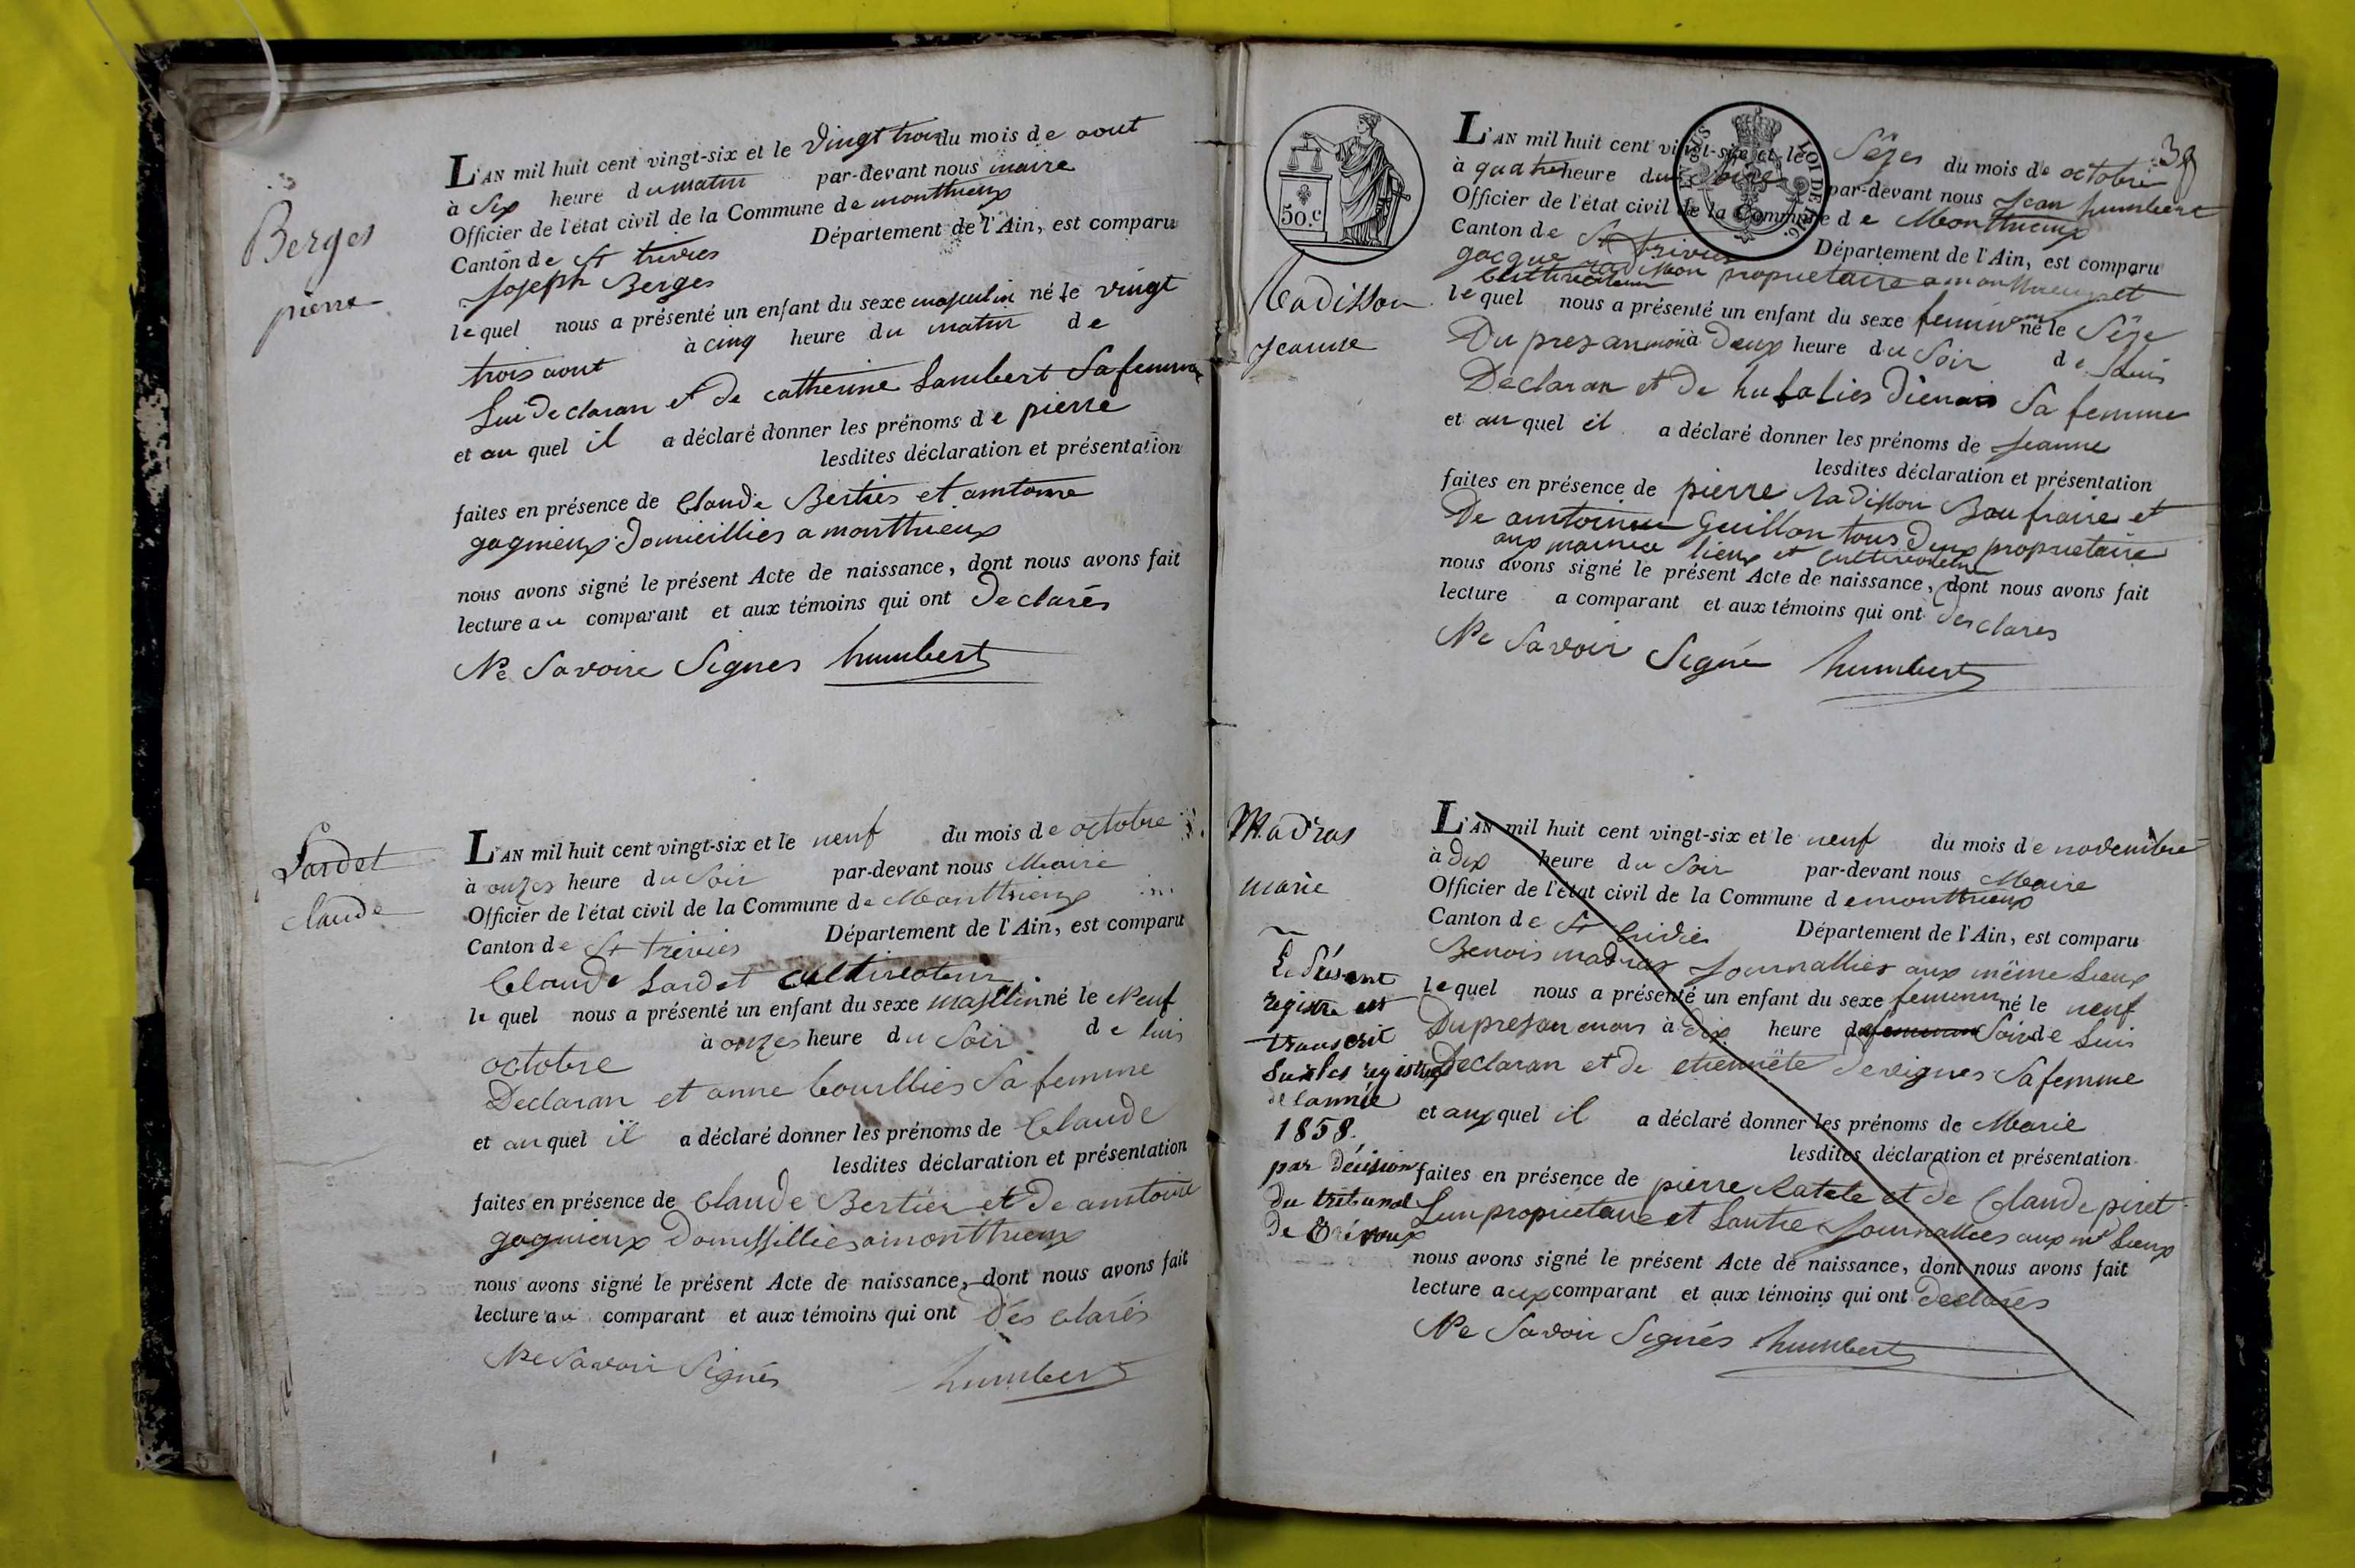 Berger
pierre
L'AN mil huit cent vingt-six et le vingt trois du mois de aout
à six heure du matin par-devant nous maire
Officier de l'état civil de la Commune de monthieux
Canton de St trivier Département de l'Ain, est comparu
Joseph Berger
lequel nous a présenté un enfant du sexe masculin né le vingt
trois aout à cinq heure du matin de
Lui declaran et de catherine Lambert Sa femme
et au quel il a déclaré donner les prénoms de pierre
lesdites déclaration et présentation
faites en présence de Claude Bertier et antoine
gagnieux domicilliés a monthieux
nous avons signé le présent Acte de naissance, dont nous avons fait
lecture au comparant et aux témoins qui ont declarés
Ne Savoire Signer humbert
Lardet
Claude
L'AN mil huit cent vingt-six et le neuf du mois de octobre
à onzes heure du Soir par-devant nous Maire
Officier de l'état civil de la Commune de Monthieux
Canton de St trivier Département de l'Ain, est comparu
Claude Lardet Cultivateur
le quel nous a présenté un enfant du sexe masculin né le Neuf
octobre à onzes heure du Soir de luis
Declaran et anne Sa femme
et au quel il a déclaré donner les prénoms de Claude
lesdites déclaration et présentation
faites en présence de Claude Bertier et De antoine
gagnieux Domissilliés a monthieux
nous avons signé le présent Acte de naissance, dont nous avons fait
lecture au comparant et aux témoins qui ont dés clarés
Ne Savoir Signés humbert
50.c
LOI DE
38
Radisson
Jeanne
L'AN mil huit cent vingt-six et le Sézes du mois de octobre
à quatre heure du Soire par-devant nous Jean humbert
Officier de l'état civil de la Commune de Monthieux
Canton de St trivier Département de l'Ain, est comparu
gacque radisson propriétaire a monthieux et
Cultivateur
lequel nous a présenté un enfant du sexe feminin né le Séze
Du presan mois à Deux heure du Soir de Luis
Declaran et De Sa femme
et au quel il a déclaré donner les prénoms de Jeanne
lesdites déclaration et présentation
faites en présence de pierre Radisson Bau fraire et
De antoine Guillon tous Deux proprietaire
aux maime lieux et Cultivateur
nous avons signé le présent Acte de naissance, dont nous avons fait
lecture a comparant et aux témoins qui ont des clares
Ne Savoir Signé humbert
Madras
marie
Le Présent
registre est
transcrit
Sur les registres
de l'année
1858.
par décision
du tribunal
de Trévoux
L'AN mil huit cent vingt-six et le neuf du mois de novembre
à dix heure du Soir par-devant nous Maire
Officier de l'état civil de la Commune de monthieux
Canton de St trivier Département de l'Ain, est comparu
Benois madras Journallier aux même Lieux
le quel nous a présenté un enfant du sexe feminin né le neuf
Du presan mois à dix heure du Soir de Luis
Declaran et de etiennëte Sa femme
et aux quel il a déclaré donner les prénoms de Marie
lesdites déclaration et présentation
faites en présence de pierre Ratele et de Claude piret
Lun propriétaire et Lautre Journallier aux me Lieux
nous avons signé le présent Acte de naissance, dont nous avons fait
lecture aux comparant et aux témoins qui ont declarés
Ne Savoir Signés humbert